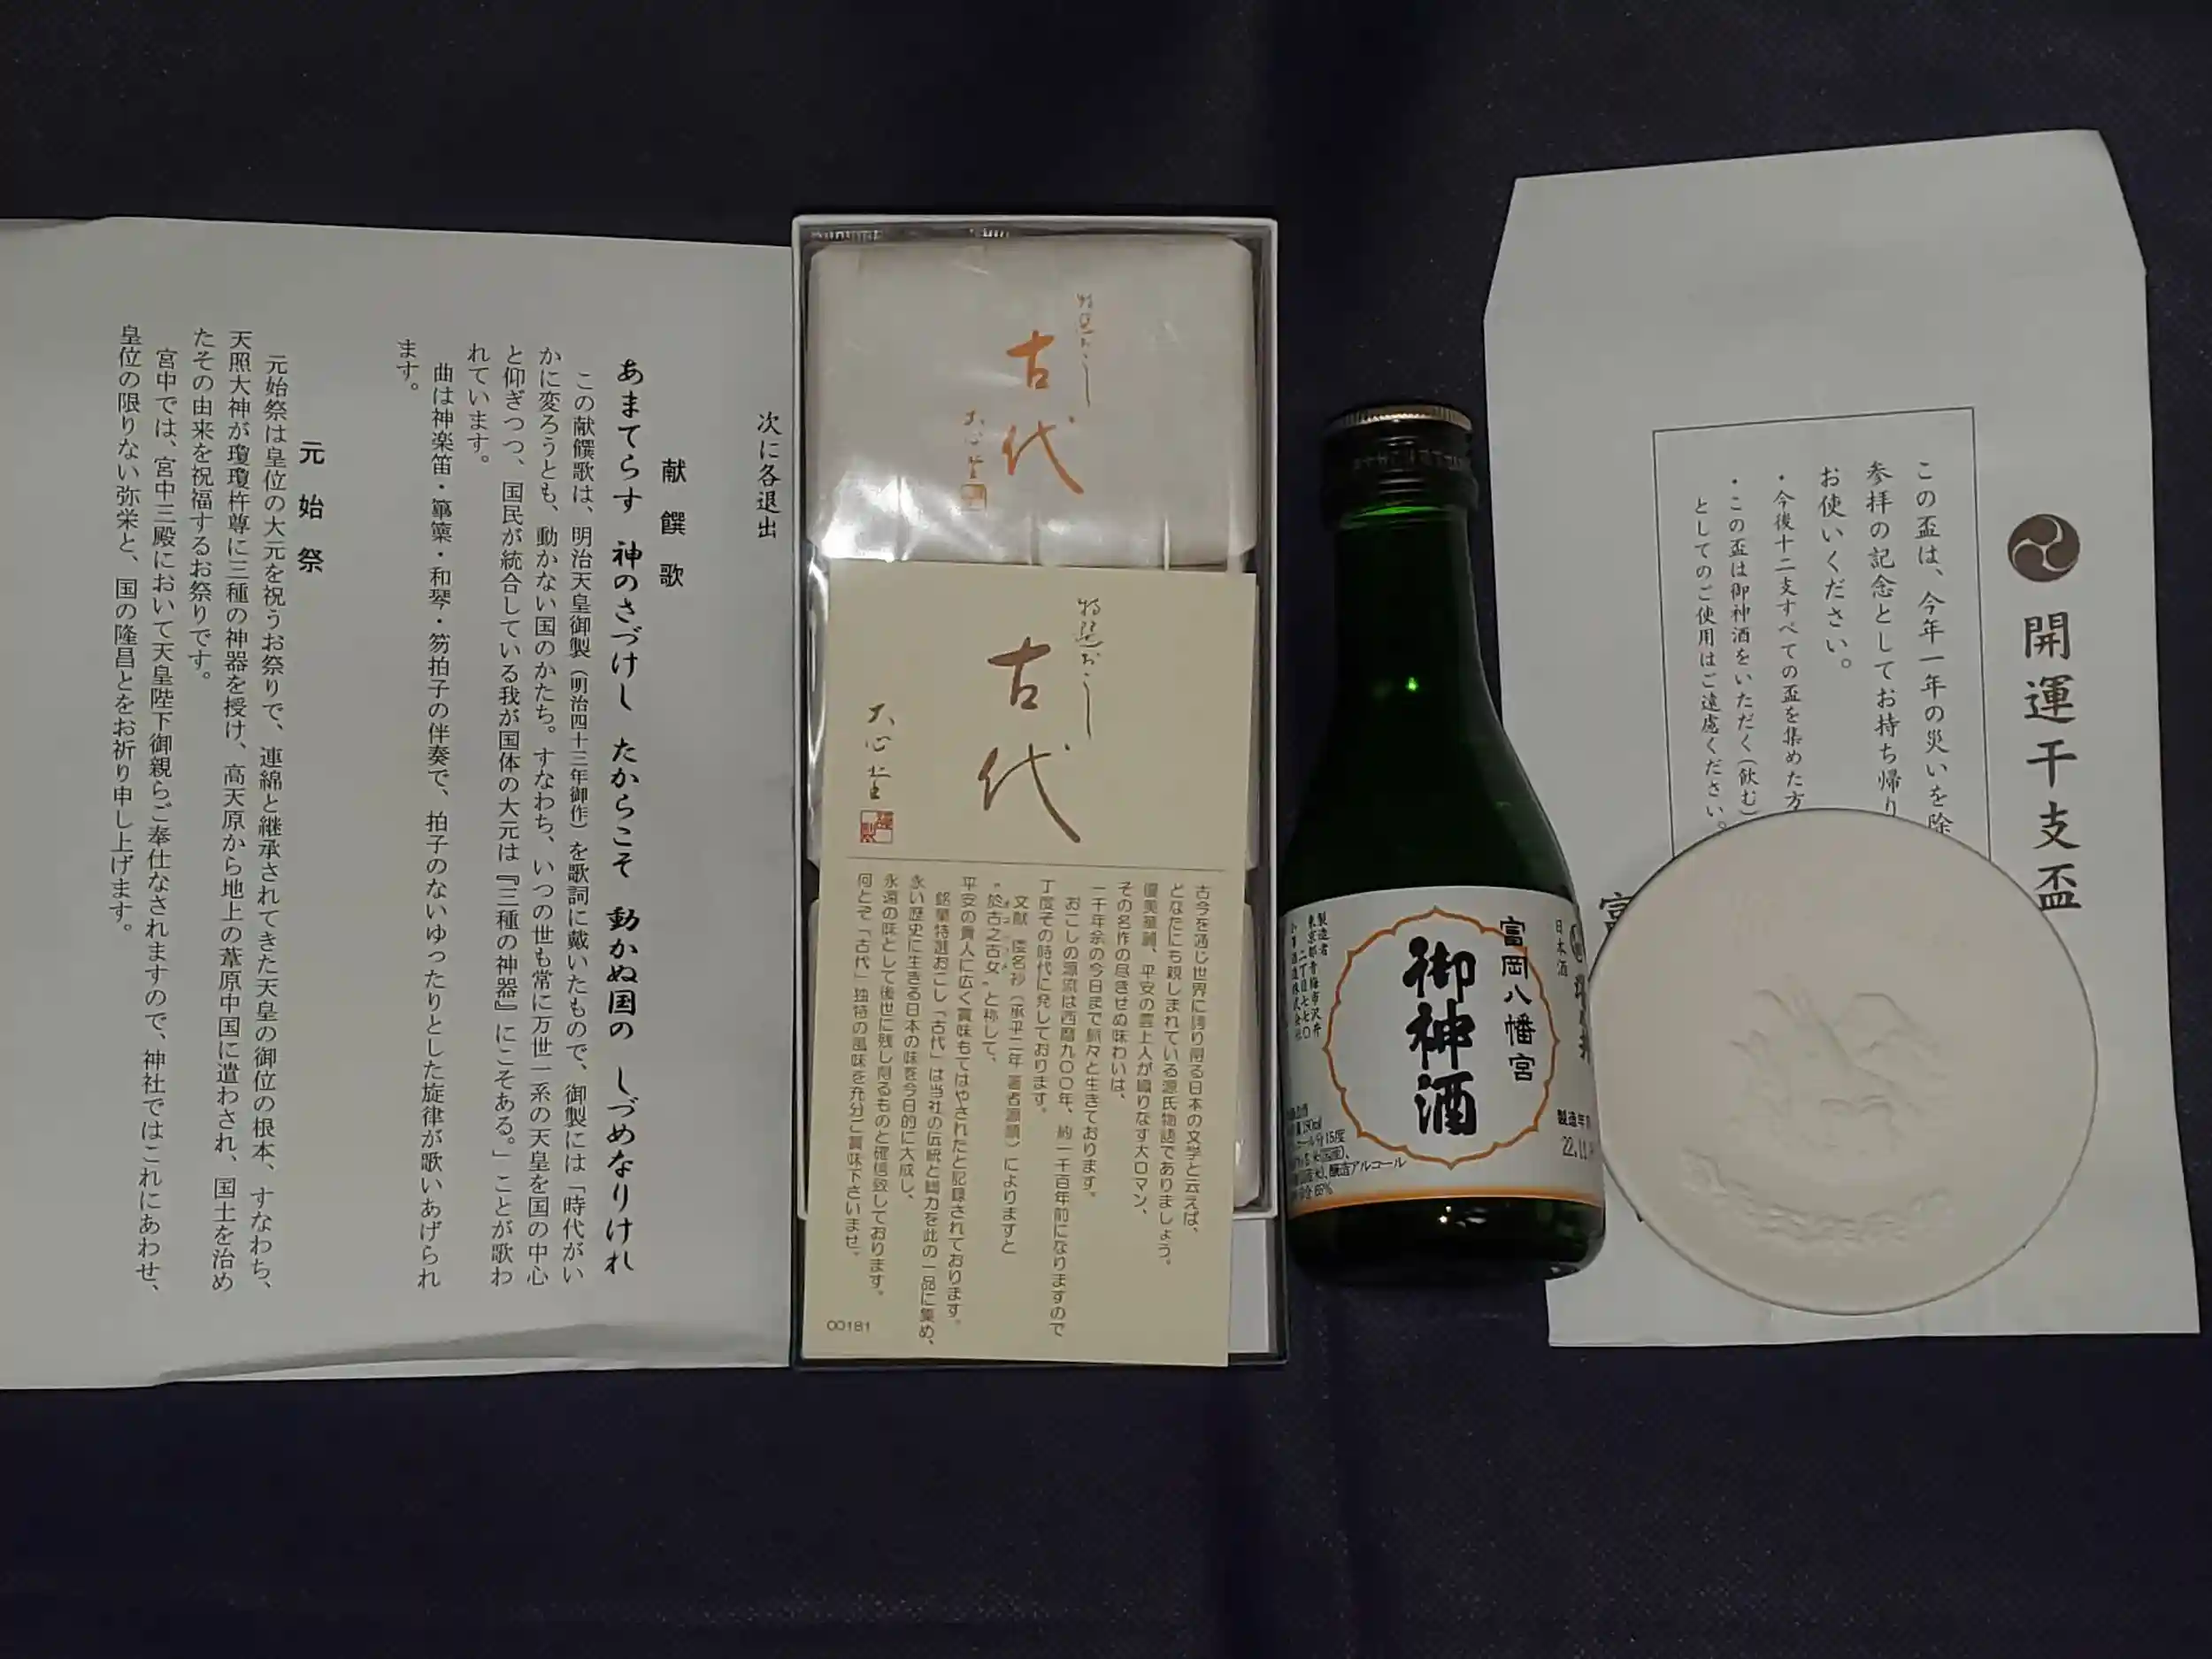 次に各退出
献饌歌
あまてらす 神のさづけし たからこそ 動かぬ国の しづめなりけれ
この献饌歌は、明治天皇御製(明治四十三年御作)を歌詞に戴いたもので、御製には「時代がい
かに変ろうとも、動かない国のかたち。すなわち、いつの世も常に万世一系の天皇を国の中心
と仰ぎつつ、国民が統合している我が国体の大元は『三種の神器』にこそある。」ことが歌わ
れています。
曲は神楽笛・篳篥・和琴・笏拍子の伴奏で、拍子のないゆったりとした旋律が歌いあげられ
ます。
元始祭
元始祭は皇位の大元を祝うお祭りで、連綿と継承されてきた天皇の御位の根本、すなわち、
天照大神が瓊瓊杵尊に三種の神器を授け、高天原から地上の葦原中国に遣わされ、国土を治め
たその由来を祝福するお祭りです。
宮中では、宮中三殿において天皇陛下御親らご奉仕なされますので、神社ではこれにあわせ、
皇位の限りない弥栄と、国の隆昌とをお祈り申し上げます。
特選おこし
古代
大心堂
特選おこし
古代
大心堂
謹製
古今を通じ世界に誇り得る日本の文学と云えば、
どなたにも親しまれている源氏物語でありましょう。
優美華麗、平安の雲上人が織りなす大ロマン、
その名作の尽きせぬ味わいは、
一千年余の今日まで脈々と生きております。
おこしの源流は西暦九〇〇年、約一千百年前になりますので
丁度その時代に発しております。
文献 倭名抄(承平二年 著者源順)によりますと
"於古之古女"と称して、
平安の貴人に広く賞味もてはやされたと記録されております。
銘菓特選おこし「古代」は当社の伝統と総力を此の一品に集め、
永い歴史に生きる日本の味を今日的に大成し、
永遠の味として後世に残し得るものと確信致しております。
何とぞ「古代」独特の風味を充分ご賞味下さいませ。
00181
富岡八幡宮
御神酒
日本酒
製造者
東京都青梅市沢井
二丁目七七〇
製造年月
22.11
醸造アルコール
開運干支盃
この盃は、今年一年の災いを除
参拝の記念としてお持ち帰り
お使いください。
・今後十二支すべての盃を集めた方
・この盃は御神酒をいただく(飲む)
としてのご使用はご遠慮ください。
富